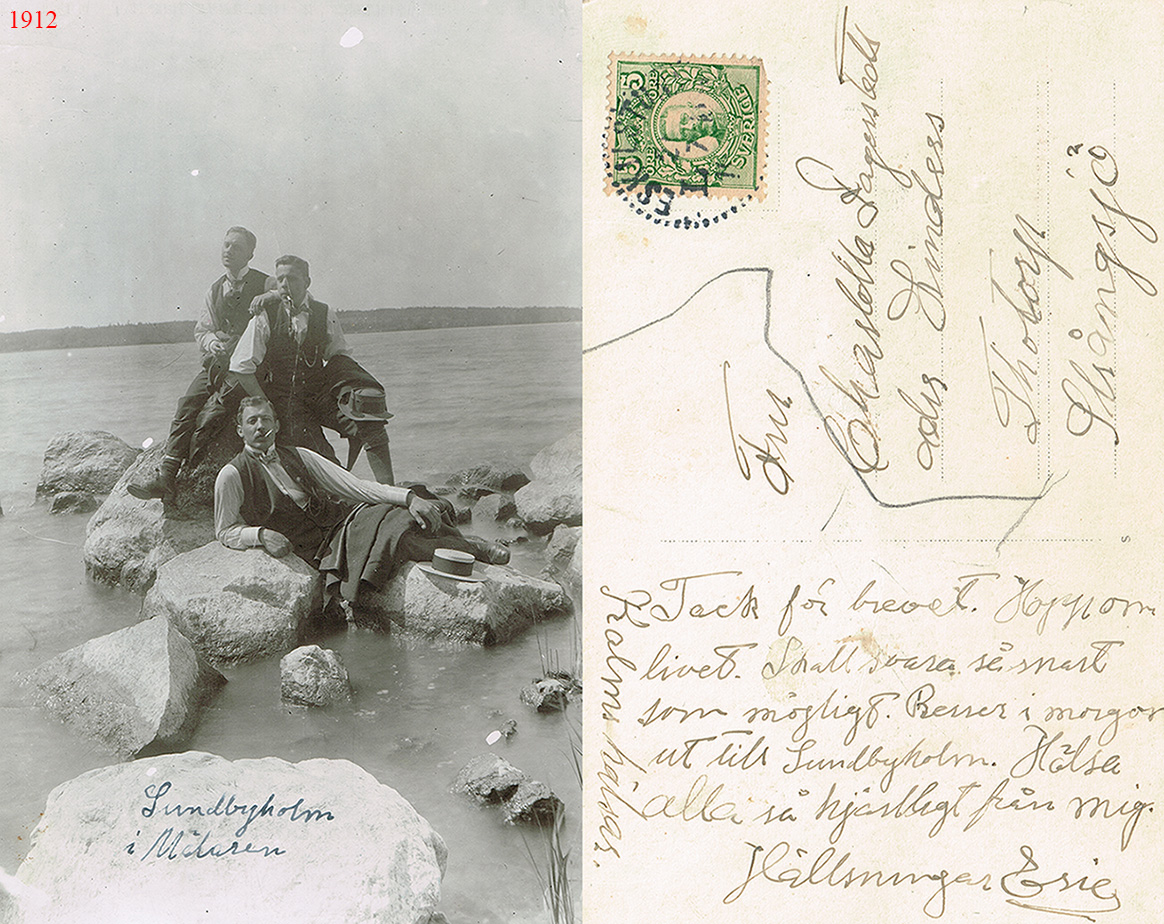 1912
Sundbyholm
i Mälaren
5 ÖRE
SVERIGE
ESKILSTUNA
Fru
Charlotta Fagerstedt
adr Linders
Thstorp
Stångsjö
Tack för brevet. Hopp om
livet. Skall svara så snart
som mögligt. Resser i morgon
ut till Sundbyholm. Hälsa
alla så hjärtligt från mig.
Hällsningar